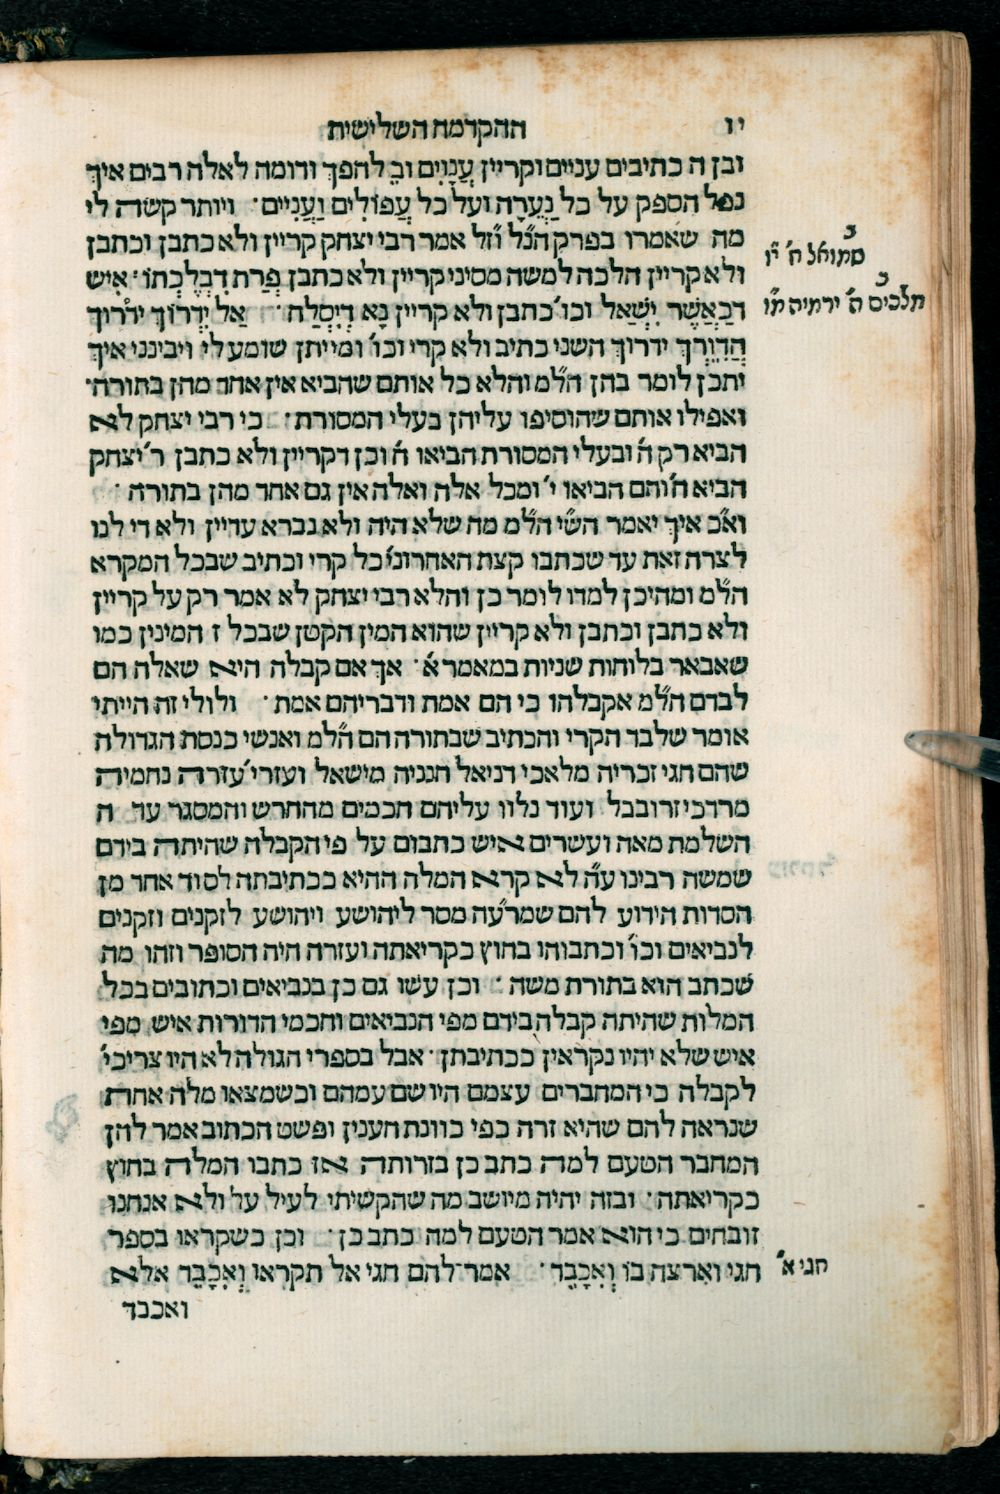 יו ההקדמה השלישית
ובן ה כתיבים עניים וקריין עֲנָוִים וב̈ להפך ודומה לאלה רבים איך
נפל הספק על כל נַעֲרָה ועל כל עֲפוֹלִים וַעֲנִיִים · ויותר קשה לי
מה שאמרו בפרק הנ̈ל וז̈ל אמר רבי יצחק קריין ולא כתבן וכתבן
ולא קריין הלכה למשה מסיני קריין ולא כתבן פְרַת דִבְלֶכְתוֹ · אִיש
דכַאֲשֶר יִשְאַל וכו׳ כתבן ולא קריין נָא דְיִסְלַח · אַל יִדְרוֹך ידרוך
הַדוֹרֵך ידרוך השני כתיב ולא קרי וכו׳ ומייתן שומע לי ויבינני איך
יתכן לומר בהן הל̈מ והלא כל אותם שהביא אין אחד מהן בתורה ·
ואפילו אותם שהוסיפו עליהן בעלי המסורת · כי רבי יצחק לא
הביא רק ה׳ ובעלי המסורת הביאו ח׳ וכן דקריין ולא כתבן ר׳ יצחק
הביא ה׳ והם הביאו י׳ ומכל אלה ואלה אין גם אחד מהן בתורה ·
וא̈כ איך יאמר הש̈י הל̈מ מה שלא היה ולא נברא עדיין ולא די לנו
לצרה זאת עד שכתבו קצת האחרוני׳ כל קרי וכתיב שבכל המקרא
הל̈מ ומהיכן למדו לומר כן והלא רבי יצחק לא אמר רק על קריין
ולא כתבן וכתבן ולא קריין שהוא המין הקטן שבכל ז המינין כמו
שאבאר בלוחות שניות במאמר א׳ · אך אם קבלה היא שאלה הם
לבדם הל̈מ אקבלהו כי הם אמת ודבריהם אמת · ולולי זה הייתי
אומר שלבד הקרי והכתיב שבתורה הם הל̈מ ואנשי כנסת הגדולה
שהם חגי זכריה מלאכי דניאל חנניה מישאל ועזרי׳ עזרה נחמיה
מרדכי זרובבל ועוד נלוו עליהם חכמים מהחרש והמסגר עד ה
השלמת מאה ועשרים איש כתבום על פי הקבלה שהיתה בידם
שמשה רבינו ע̈ה לא קרא המלה ההיא ככתיבתה לסוד אחד מן
הסדות הידוע להם שמר̈עה מסר ליהושע ויהושע לזקנים וזקנים
לנביאים וכו׳ וכתבוהו בחוץ כקריאתה ועזרה היה הסופר וזהו מה
שכתב הוא בתורת משה · וכן עשו גם כן בנביאים וכתובים בכל
המלות שהיתה קבלה בידם מפי הנביאים וחכמי הדורות איש מפי
איש שלא יהיו נקראין ככתיבתן · אבל בספרי הגולה לא היו צריכי׳
לקבלה כי המחברים עצמם היו שם עמהם וכשמצאו מלה אחת
שנראה להם שהיא זרה כפי כוונת הענין ופשט הכתוב אמר להן
המחבר הטעם למה כתב כן בזרותה אז כתבו המלה בחוץ
כקריאתה · ובזה יהיה מיושב מה שהקשיתי לעיל על ולא אנחנו
זובחים כי הוא אמר הטעם למה כתב כן · וכן כשקראו בספר
חגי וארצה בו וְאִכָבֵד · אמר להם חגי אל תקראו וְאִכָבֵד אלא
ואכבד
ב
שמואל ח׳ י̈ו
ב
מלכים ה׳ ירמיה נ̈ו
חגי א׳